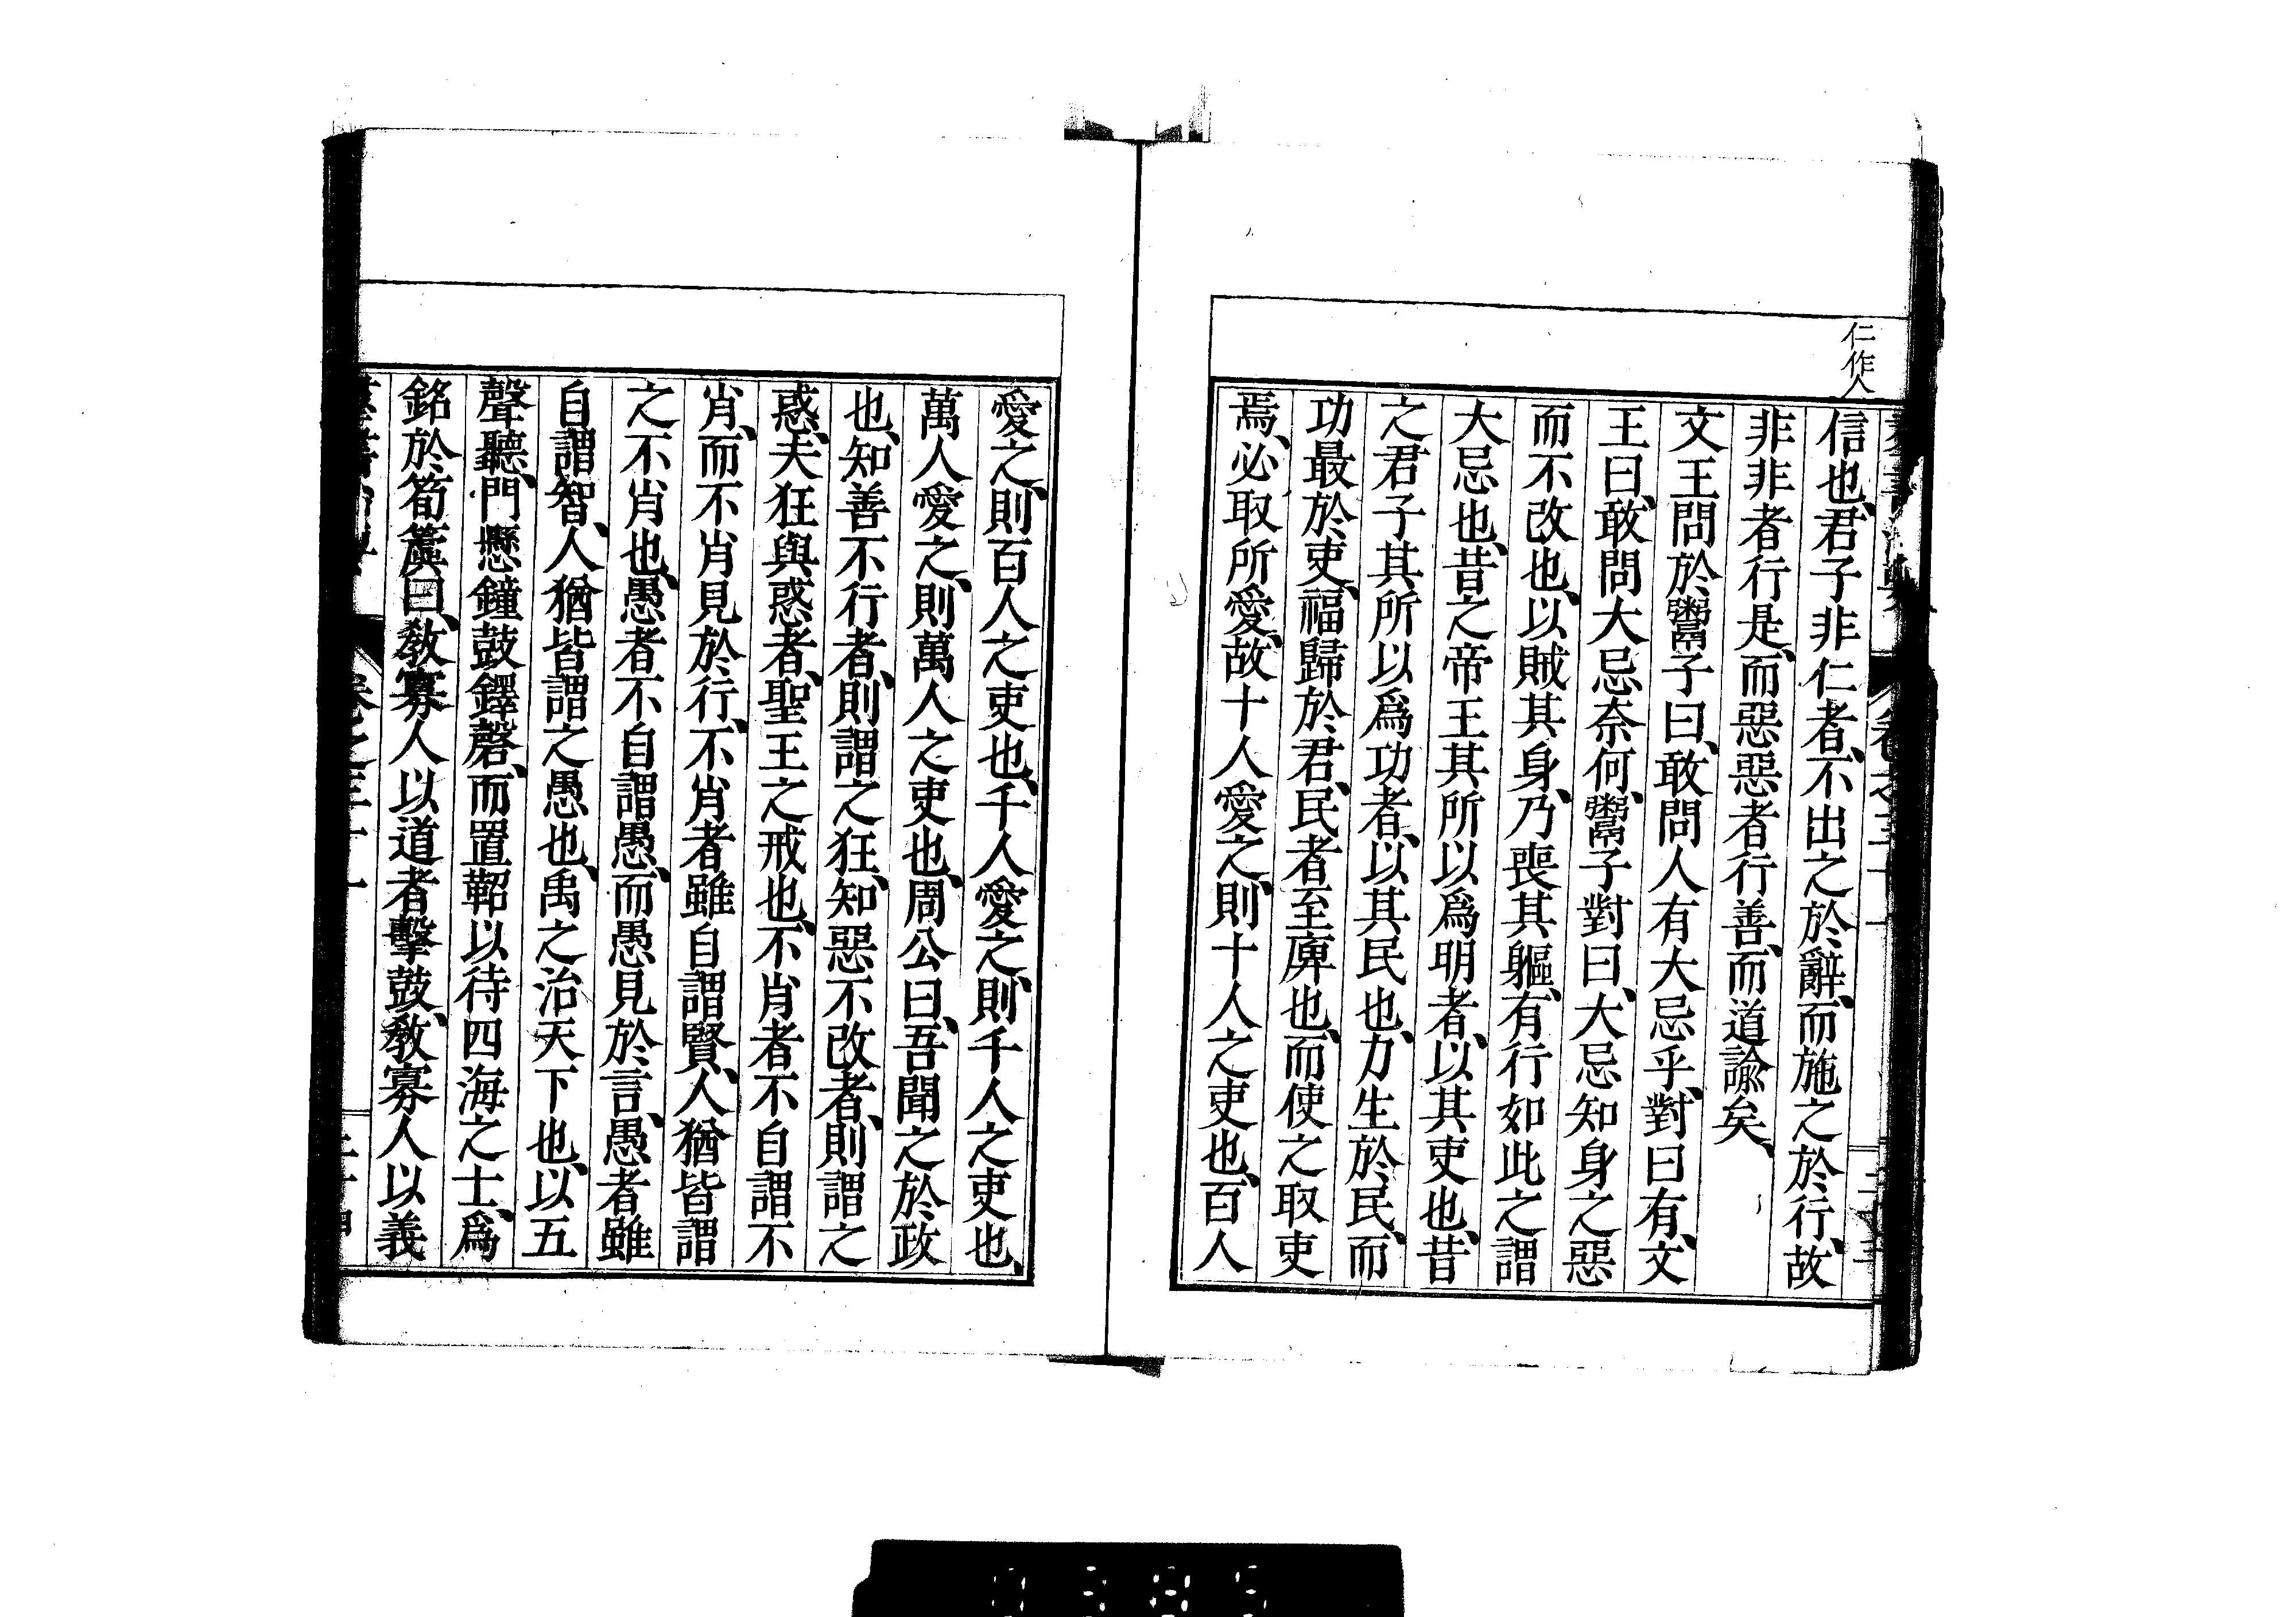 仁作人
信也、君子非仁者、不出之於辭、而施之於行、故
非非者行是、而惡惡者行善、而道諭矣、
文王問於鬻子曰、敢問人有大忌乎、對曰有、文
王曰、敢問大忌奈何、鬻子對曰、大忌知身之惡
而不改也、以賊其身、乃喪其軀、有行如此之謂
大忌也、昔之帝王其所以爲明者、以其吏也、昔
之君子其所以爲功者、以其民也、力生於民、而
功最於吏、福歸於君、民者至庳也、而使之取吏
焉、必取所愛、故十人愛之、則十人之吏也、百人
愛之、則百人之吏也、千人愛之、則千人之吏也、
萬人愛之、則萬人之吏也、周公曰、吾聞之於政
也、知善不行者、則謂之狂、知惡不改者、則謂之
惑、夫狂與惑者、聖王之戒也、不肖者不自謂不
肖、而不肖見於行、不肖者雖自謂賢、人猶皆謂
之不肖也、愚者不自謂愚、而愚見於言、愚者雖
自謂智、人猶皆謂之愚也、禹之治天下也、以五
聲聽、門懸鐘鼓鐸磬、而置鞀以待四海之士、爲
銘於筍簴曰、敎寡人以道者擊鼓、敎寡人以義